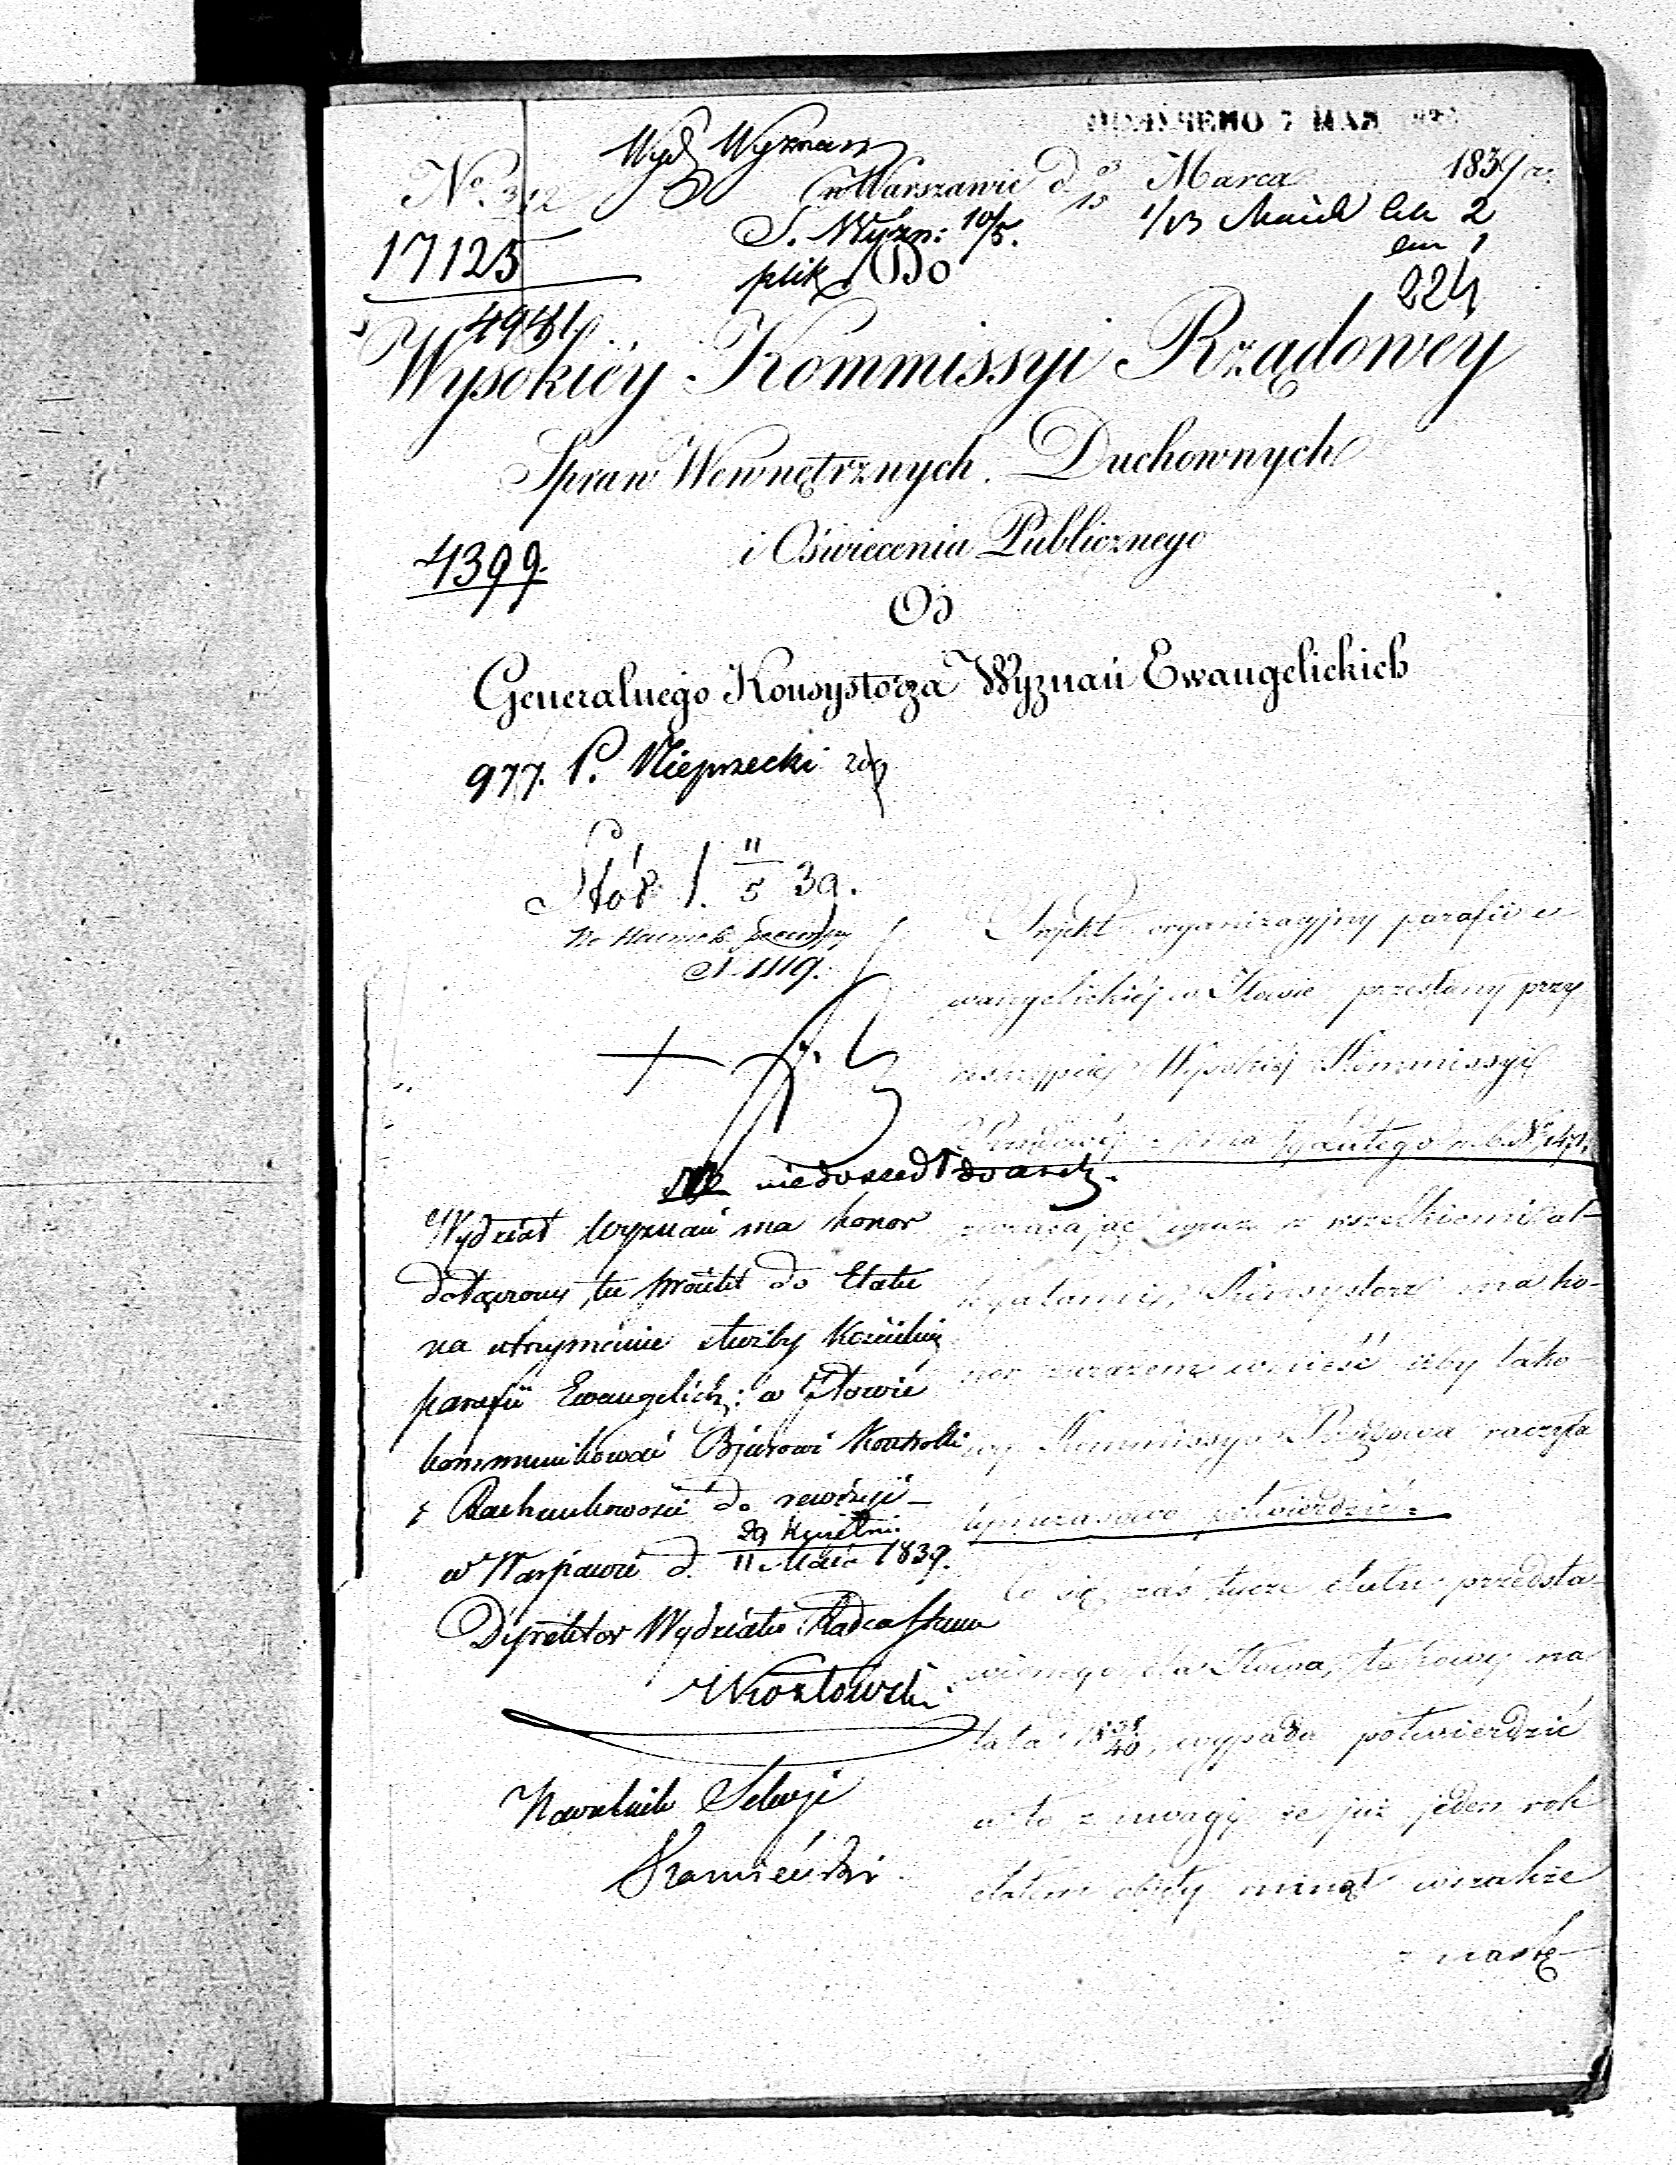 Wyd Wyznań
No 312
w Warszawie d. 3/15 Marca 1839 r.
S. Wyzn: 10/5.
17125
plik Do
224
4981
Wysokiéy Kommissyi Rządowéy
Spraw Wewnętrznych, Duchownych
i Oświecenia Publicznego
4399.
Od
Generalnego Konsystorza Wyznań Ewangelickich
977. P. Nieprzecki
11/5 39.
N. 1119.
Projekt organizacyjny parafii e-
wangelickiéj w Iłowie przesłany przy
reskrypcie Wysokiéj Kommissyi
Rządowéj z dnia Lutego r. b. No
zwracając wraz z wszelkiemi al-
legatami, Konsystorz ma ho-
nor zarazem wnieść aby tako-
wy Kommissya Rządowa raczyła
tymczasowo potwierdzić.
Co się zaś tycze etatu przedsta-
wionego dla Iłowa, takowy na
lata 1838/40, wypada potwierdzić
a to z uwagi, że już jeden rok
etatem objęty minął wszakże
z nastę-
NB niedoszedł do
Wydział Wyznań ma honor
dołączony tu projekt do Etatu
na utrzymanie służby Kościelnej
parafii Ewangelick: w Iłowie
kommunikować Bjurowi Kontrolli
i Rachunkowości do rewizji
w Warszawie d. 29 Kwietni. / 11 Maia 1839.
Dyrektor Wydziału Radca Stanu
Kozłowski
Naczelnik Sekcji
Kamieński